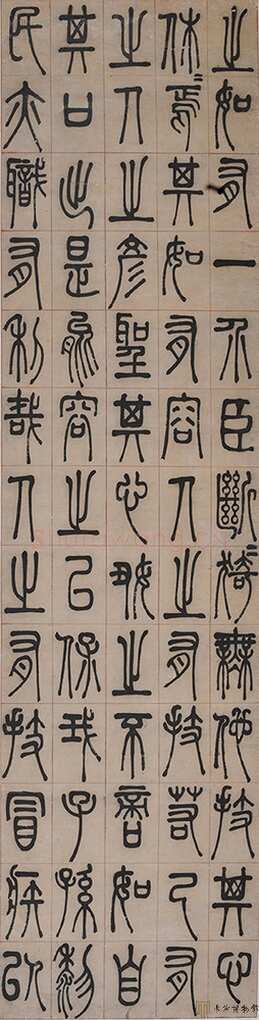 之如有一介臣斷猗無他技其心
休〻焉其如有容人之有技若己有
之人之彥聖其心好之不啻如自
其口出是能容之以保我子孫黎
民亦職有利哉人之有技冒疾以